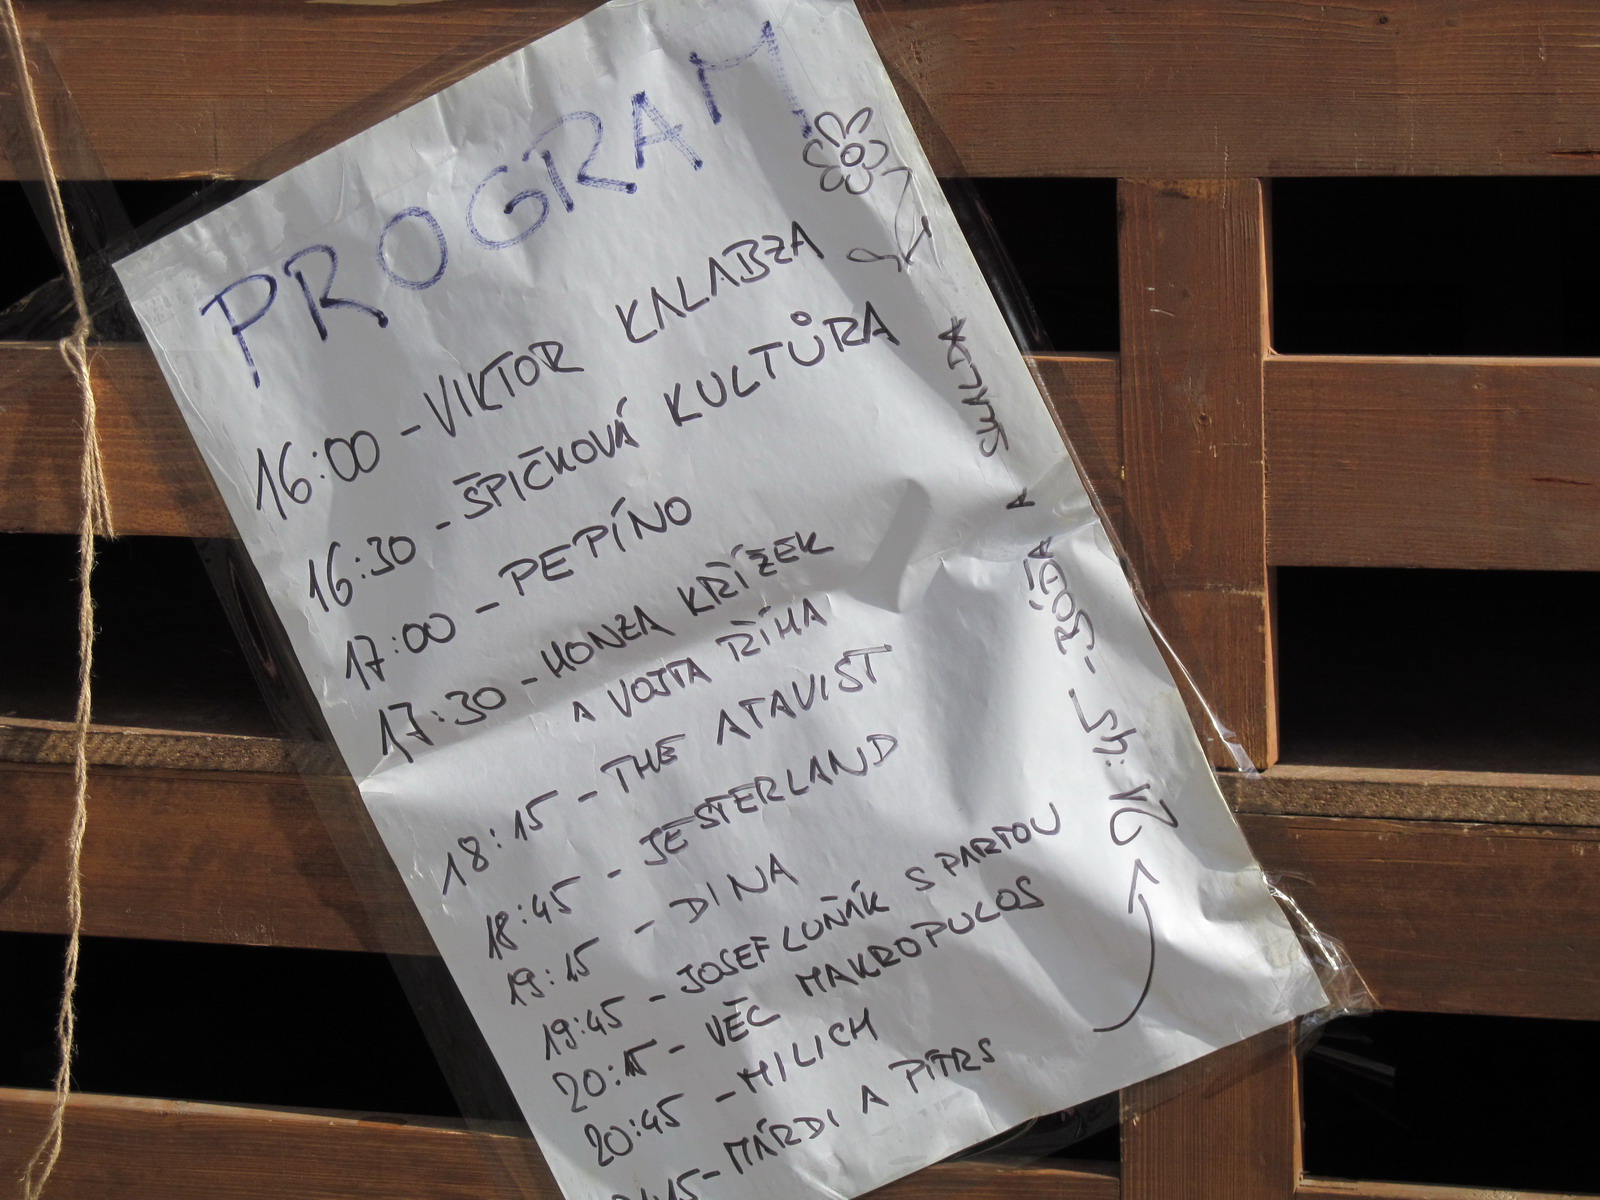 PROGRAM
16:00 - VIKTOR KALABZA
16:30 - ŠPIČKOVÁ KULTŮRA
17:00 - PEPÍNO
17:30 - HONZA KŘÍŽEK
A VOJTA ŘÍHA
18:15 - THE ATAVIST
18:45 - JESTERLAND
19:15 - DINA
19:45 - JOSEF LUŇÁK S PARTOU
20:15 - VĚC MAKROPULOS
20:45 - MILICH
21:15 - MÁRDI A PÍTRS
21:45 - RÓĎA A SUALDA